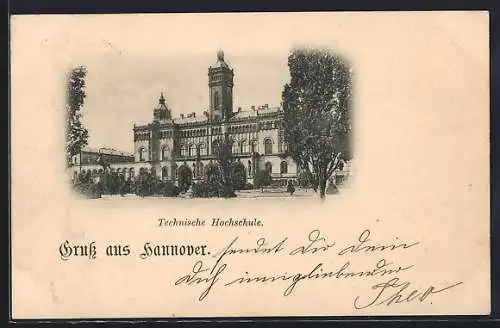 Technische Hochschule.
Gruß aus Hannover. sendet Dir Dein
Dich innigliebender
Theo.